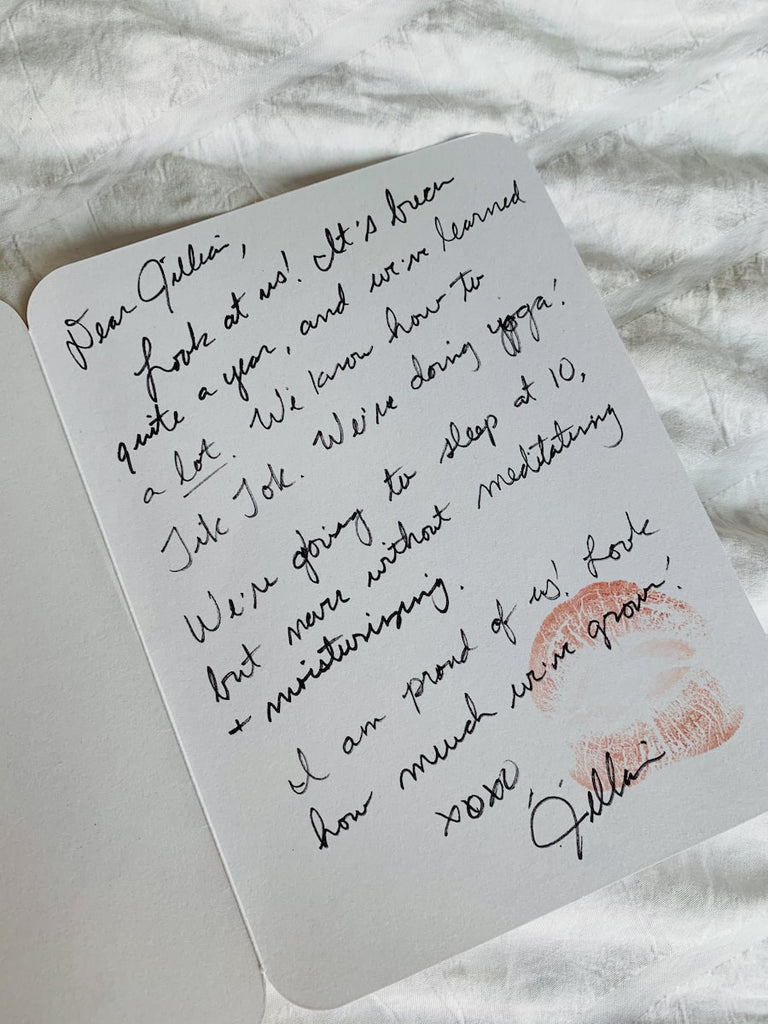 Dear Jillian,
Look at us! It's been
quite a year, and we've learned
a lot. We know how to
Tik Tok. We're doing yoga!
We're going to sleep at 10,
but never without meditaturing
+ moisturizing.
I am proud of us! Look
how much we've grown!
xoxo
Jillian